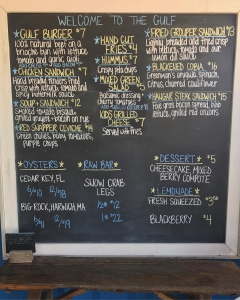 WELCOME TO THE GULF
*GULF BURGER *7
100% natural beef on a
brioche bun with lettuce
tomato and garlic aioli
*CHICKEN SANDWICH *7
Hand breaded tenders fried
crisp with lettuce, tomato and
*SOUP + SANDWICH *12
Smoked tomato bisque,
*RED SNAPPER CEVICHE *14
Green chilies, pearl tomatoes,
purple chips
*HAND CUT
FRIES *4
*HUMMUS *7
Crispy pita chips
*MIXED GREEN
SALAD
Balsamic dressing
cherry tomatoes
*KIDS GRILLED
CHEESE *7
Served with fries
*FRIED GROUPER SANDWICH *13
Lightly breaded and fried crisp
with lettuce, tomato, and our
lemon dill sauce
*BLACKENED COBIA *16
Greenman's unique spinach,
citrus, charred cauliflower
*HANGAR STEAK SANDWICH *15
lettuce, grilled red onions
*OYSTERS*
CEDAR KEY, FL
6/*10 12/*18
BIG ROCK, HARWICH, MA
6/*11 12/*19
*RAW BAR*
SNOW CRAB
LEGS
1/2# *12
1# *22
*DESSERT* *5
CHEESECAKE, MIXED
BERRY COMPOTE
*LEMONADE*
FRESH SQUEEZED *3.50
BLACKBERRY *4